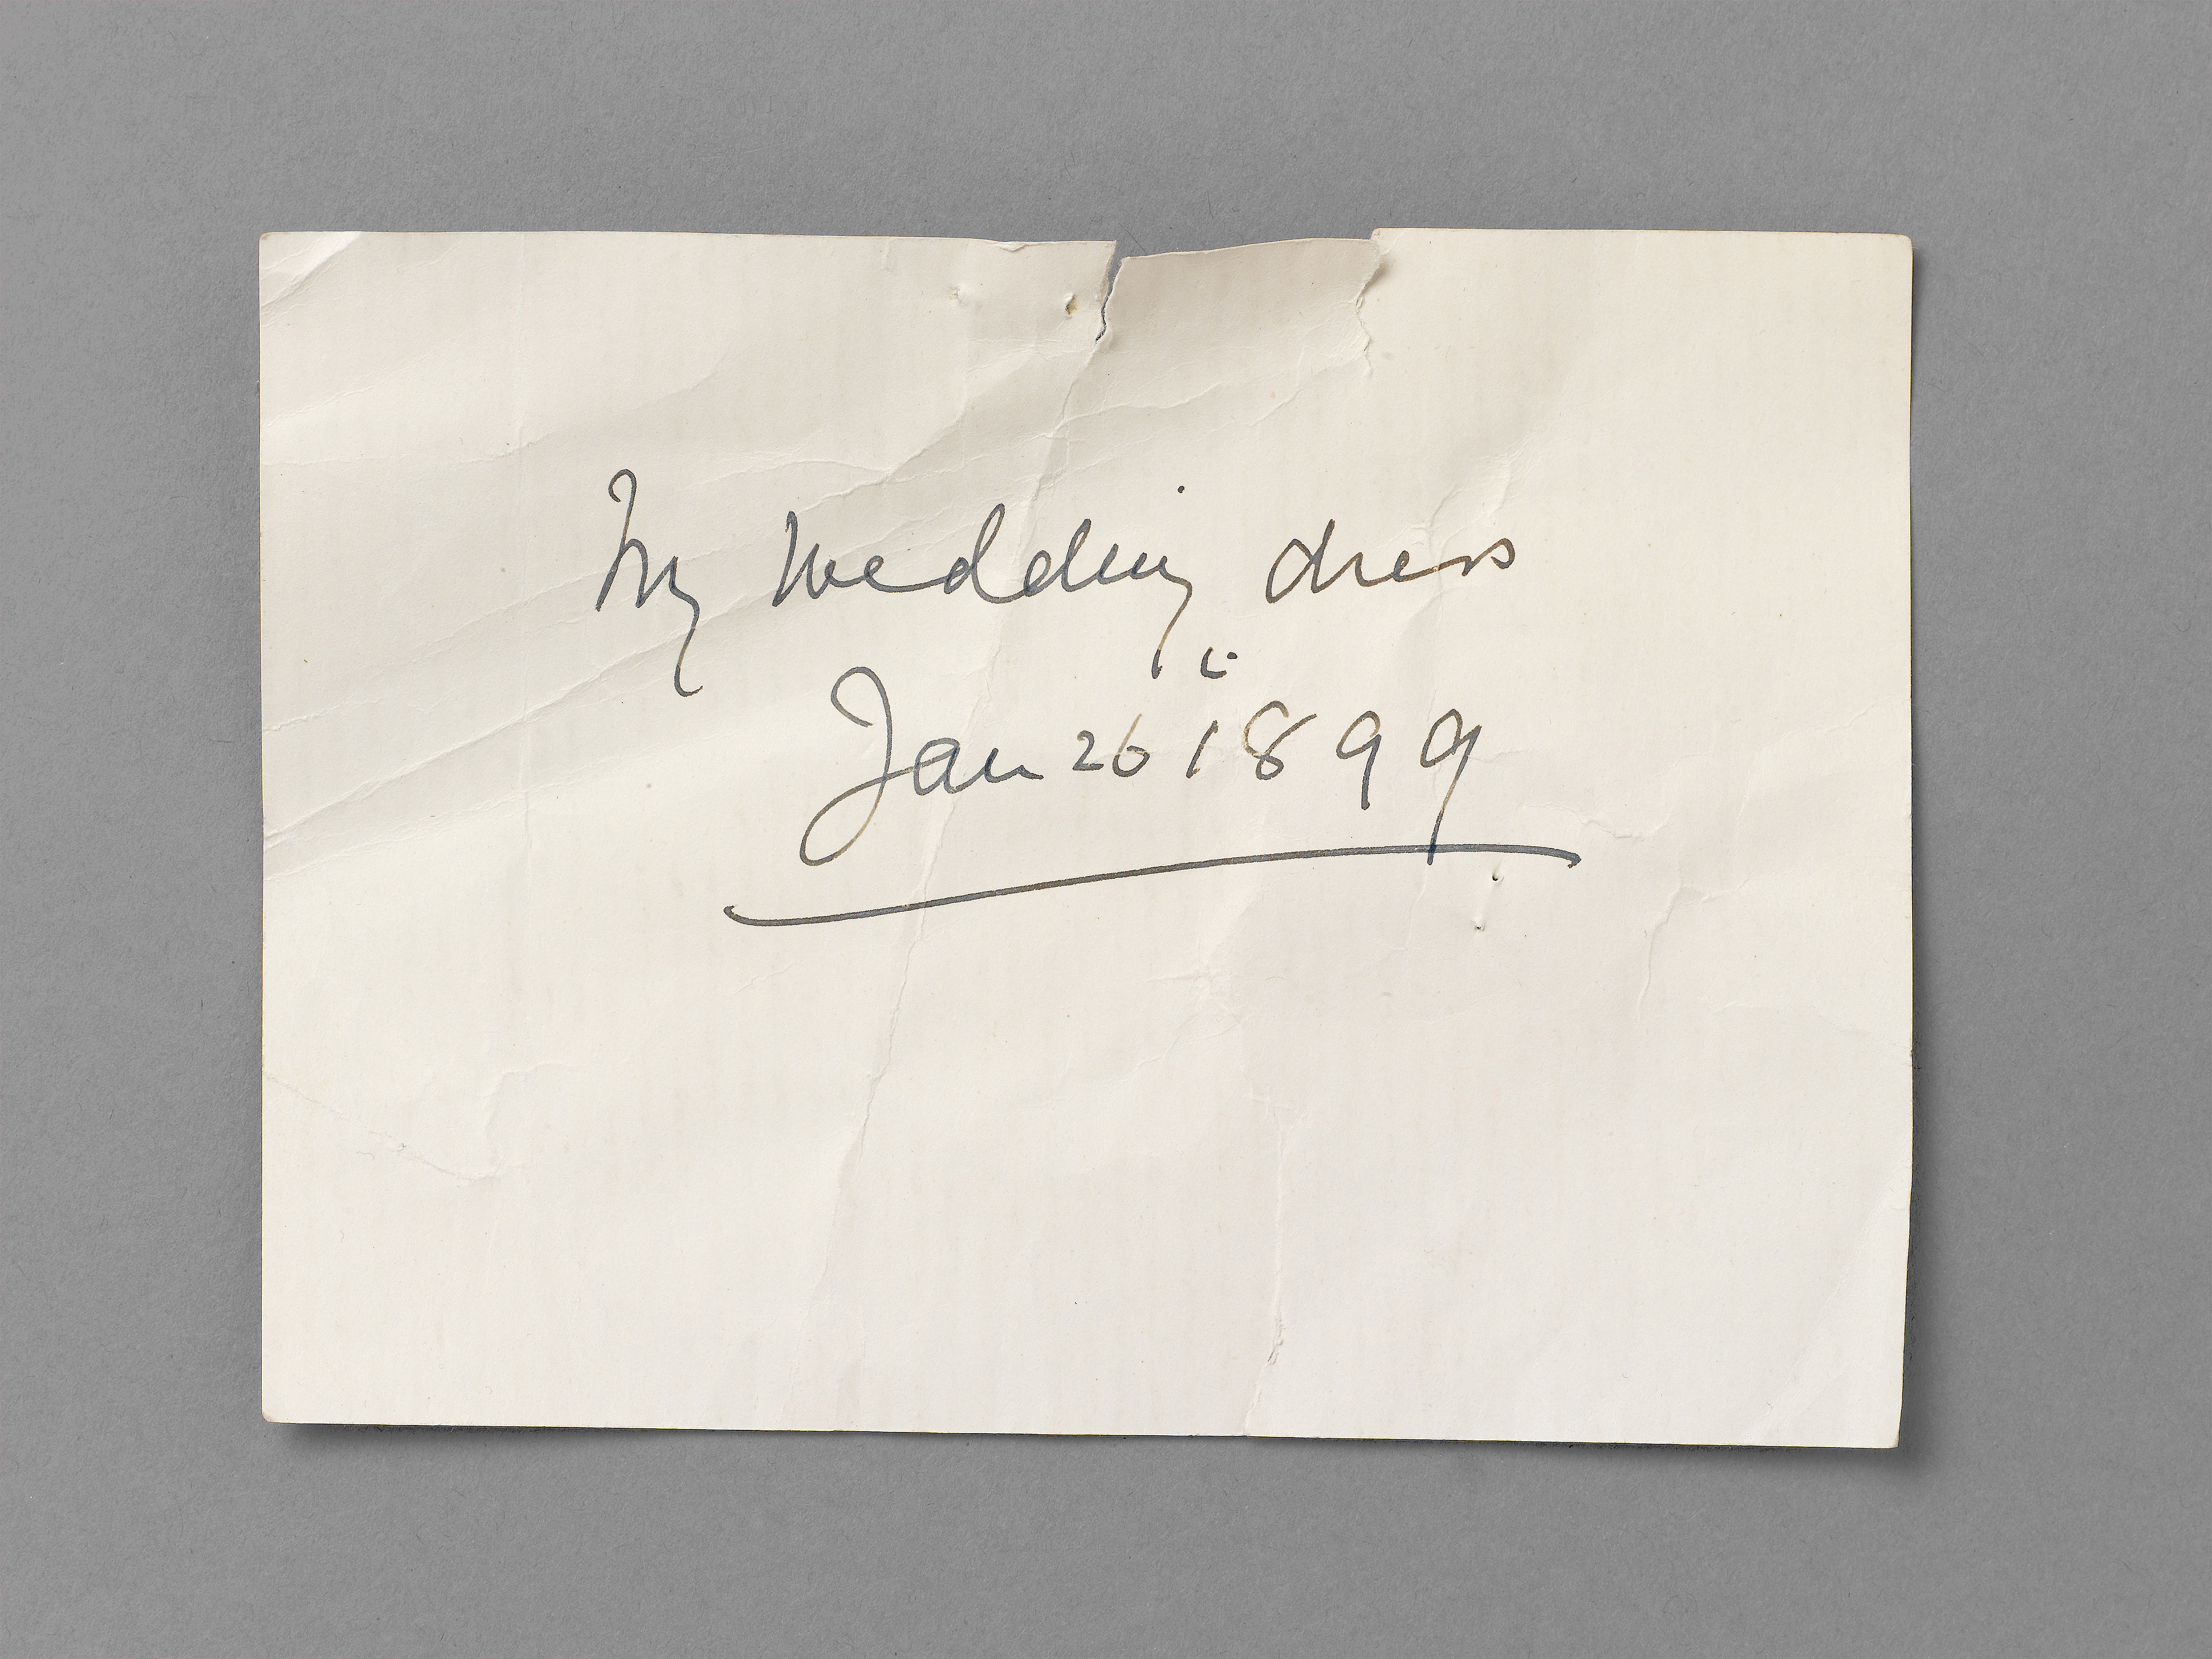 My Wedding dress
Jan 26 1899